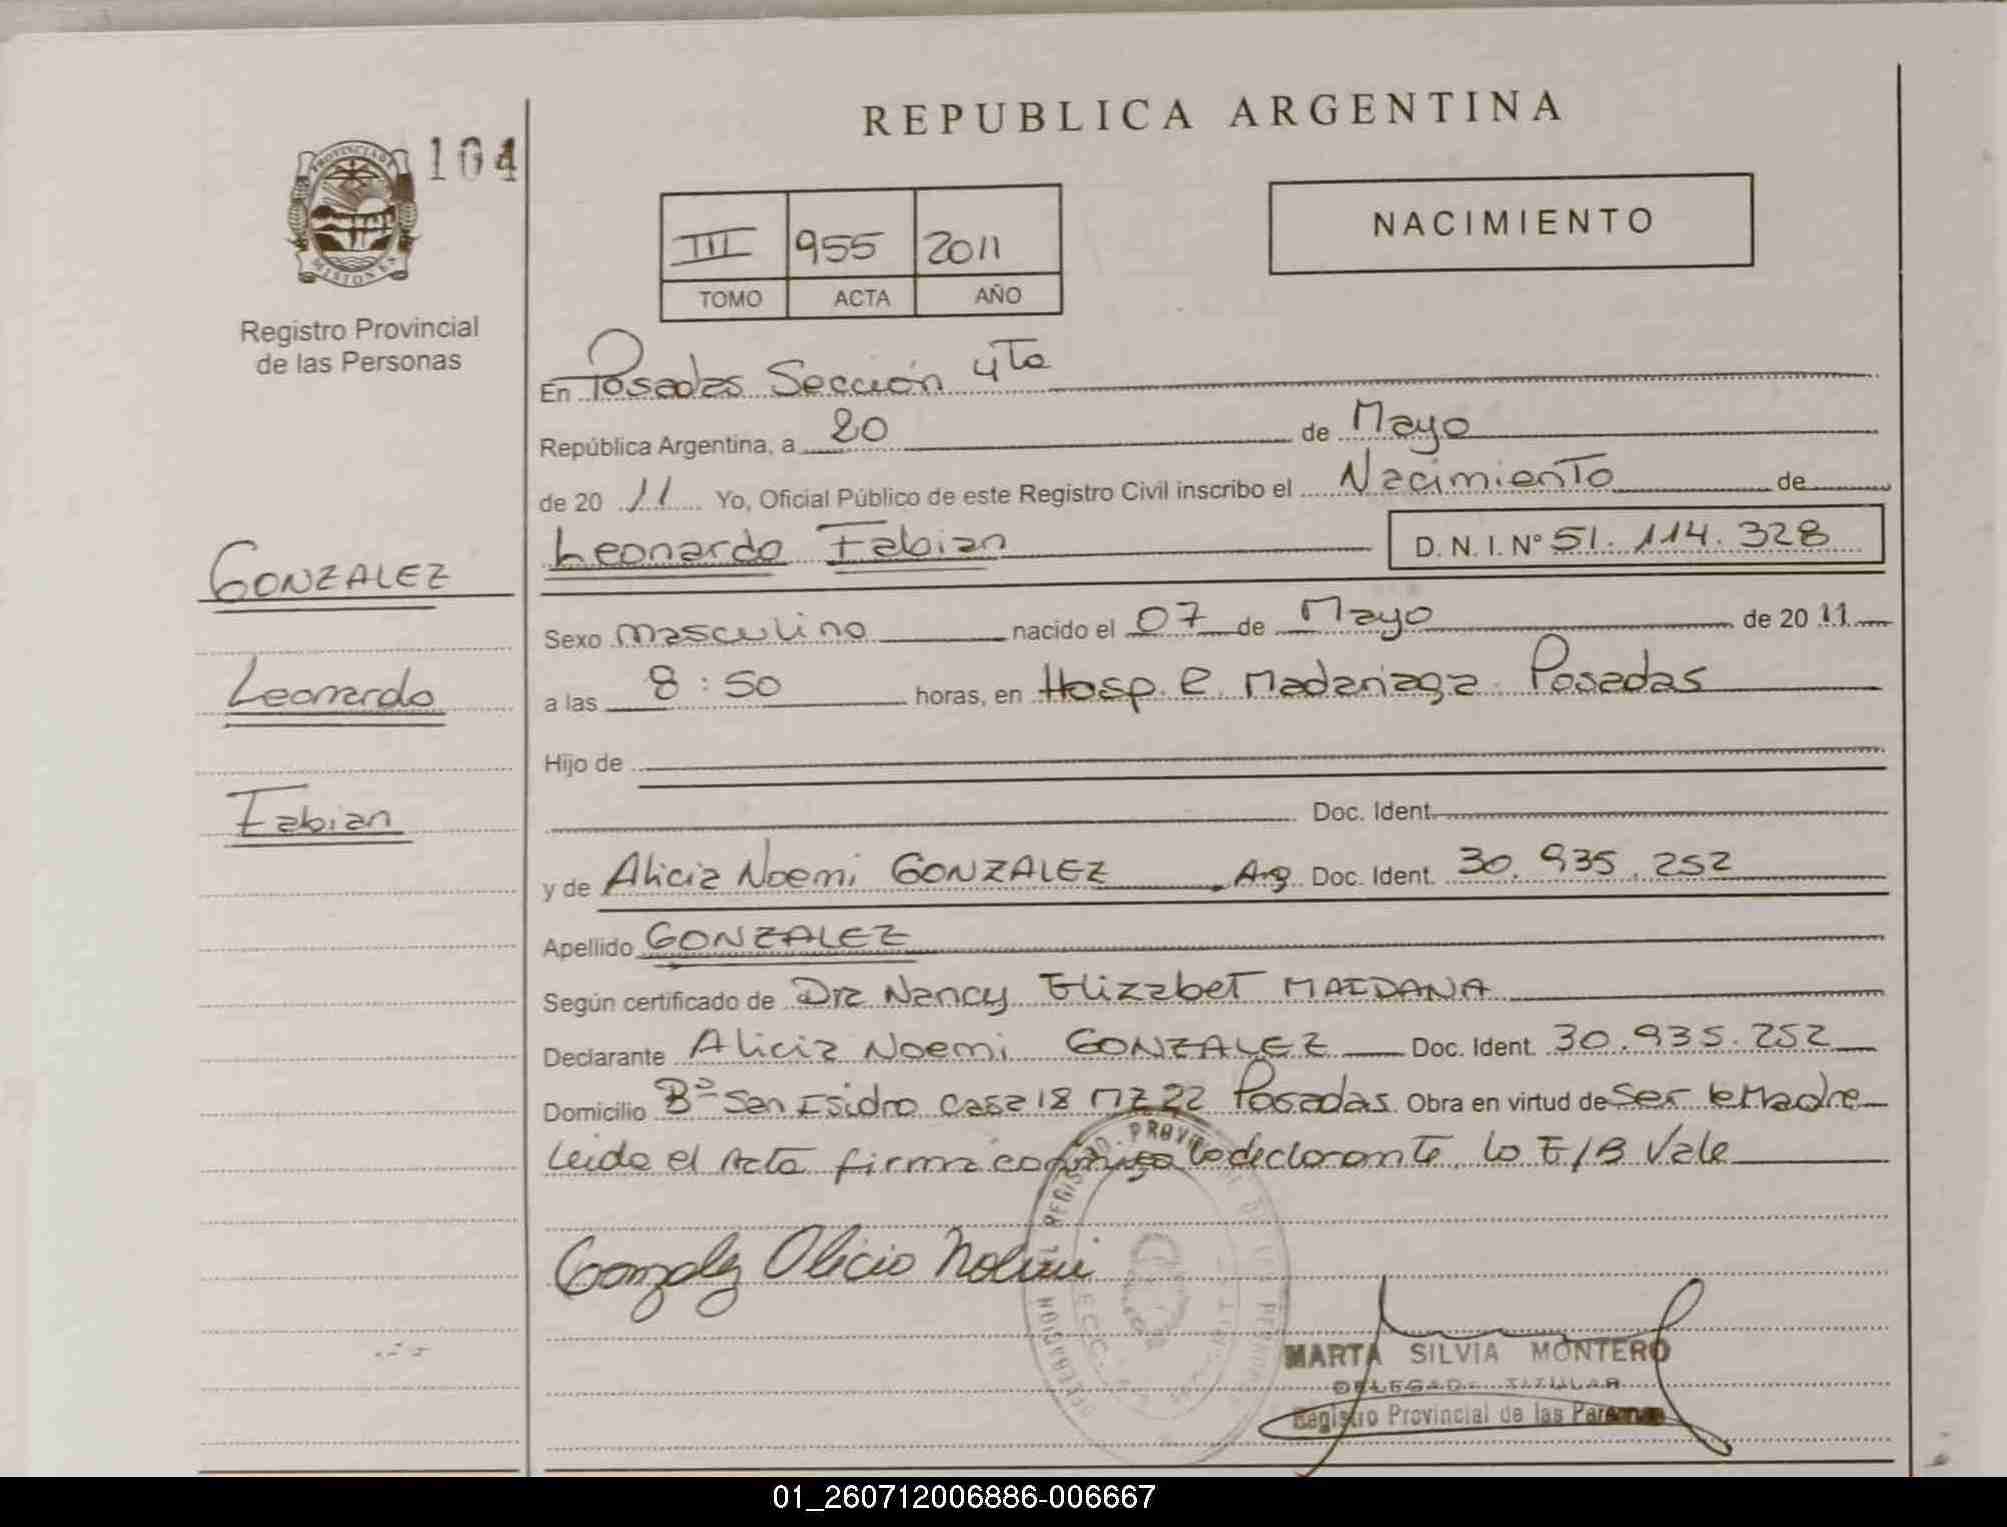 REPUBLICA ARGENTINA
PROVINCIA DE
MISIONES
104
Registro Provincial
de las Personas
III 955 2011
TOMO ACTA AÑO
NACIMIENTO
En Posadas Sección 4ta
República Argentina, a 20 de Mayo
de 20 11 Yo, Oficial Público de este Registro Civil inscribo el Nacimiento de
Leonardo Fabian D.N.I. Nº 51.114.328
GONZALEZ
Leonardo
Fabian
Sexo masculino nacido el 07 de Mayo de 20 11
a las 8:50 horas, en Hosp. R. Madariaga Posadas
Hijo de
Doc. Ident.
y de Alicia Noemi GONZALEZ Arg Doc. Ident. 30.935.252
Apellido GONZALEZ
Según certificado de Dra Nancy Elizabet MAIDANA
Declarante Alicia Noemi GONZALEZ Doc. Ident. 30.935.252
Domicilio Bº San Isidro casa 18 MZ 22 Posadas Obra en virtud de ser la Madre
Leida el Acta firma conmigo la declarante, lo E/B Vale
Gonzalez Alicia Noemi
MARTA SILVIA MONTERO
DELEGADA TITULAR
Registro Provincial de las Personas
01_260712006886-006667